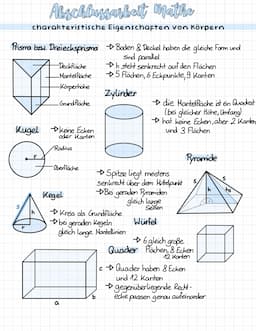 Abschlussarbeit Mathe
charakteristische Eigenschaften von Körpern
Prisma bzw. Dreiecksprisma
→ Boden & Deckel haben die gleiche Form und
sind parallel
→ h steht senkrecht auf den Flächen
→ 5 Flächen, 6 Eckpunkte, 9 Kanten
Deckfläche
Mantelfläche
Körperhöhe
Grundfläche
Zylinder
→ die Mantelfläche ist ein Quadrat
(bei gleicher Höhe, Umfang)
→ hat keine Ecken, aber 2 Kanten
und 3 Flächen
Kugel
→ Keine Ecken
oder Kanten
Radius
r
Oberfläche
Pyramide
→ Spitze liegt meistens
senkrecht über dem Mittelpunkt
→ Bei geraden Pyramiden
gleich lange
Seiten
s
h
hs
Kegel
s
h
r
→ Kreis als Grundfläche
→ bei geraden Kegeln
gleich lange Mantellinien
Würfel
→ 6 gleich große
Flächen, 8 Ecken
12 Kanten
Quader
→ Quader haben 8 Ecken
und 12 Kanten
→ gegenüberliegende Recht-
ecke passen genau aufeinander
a
b
c